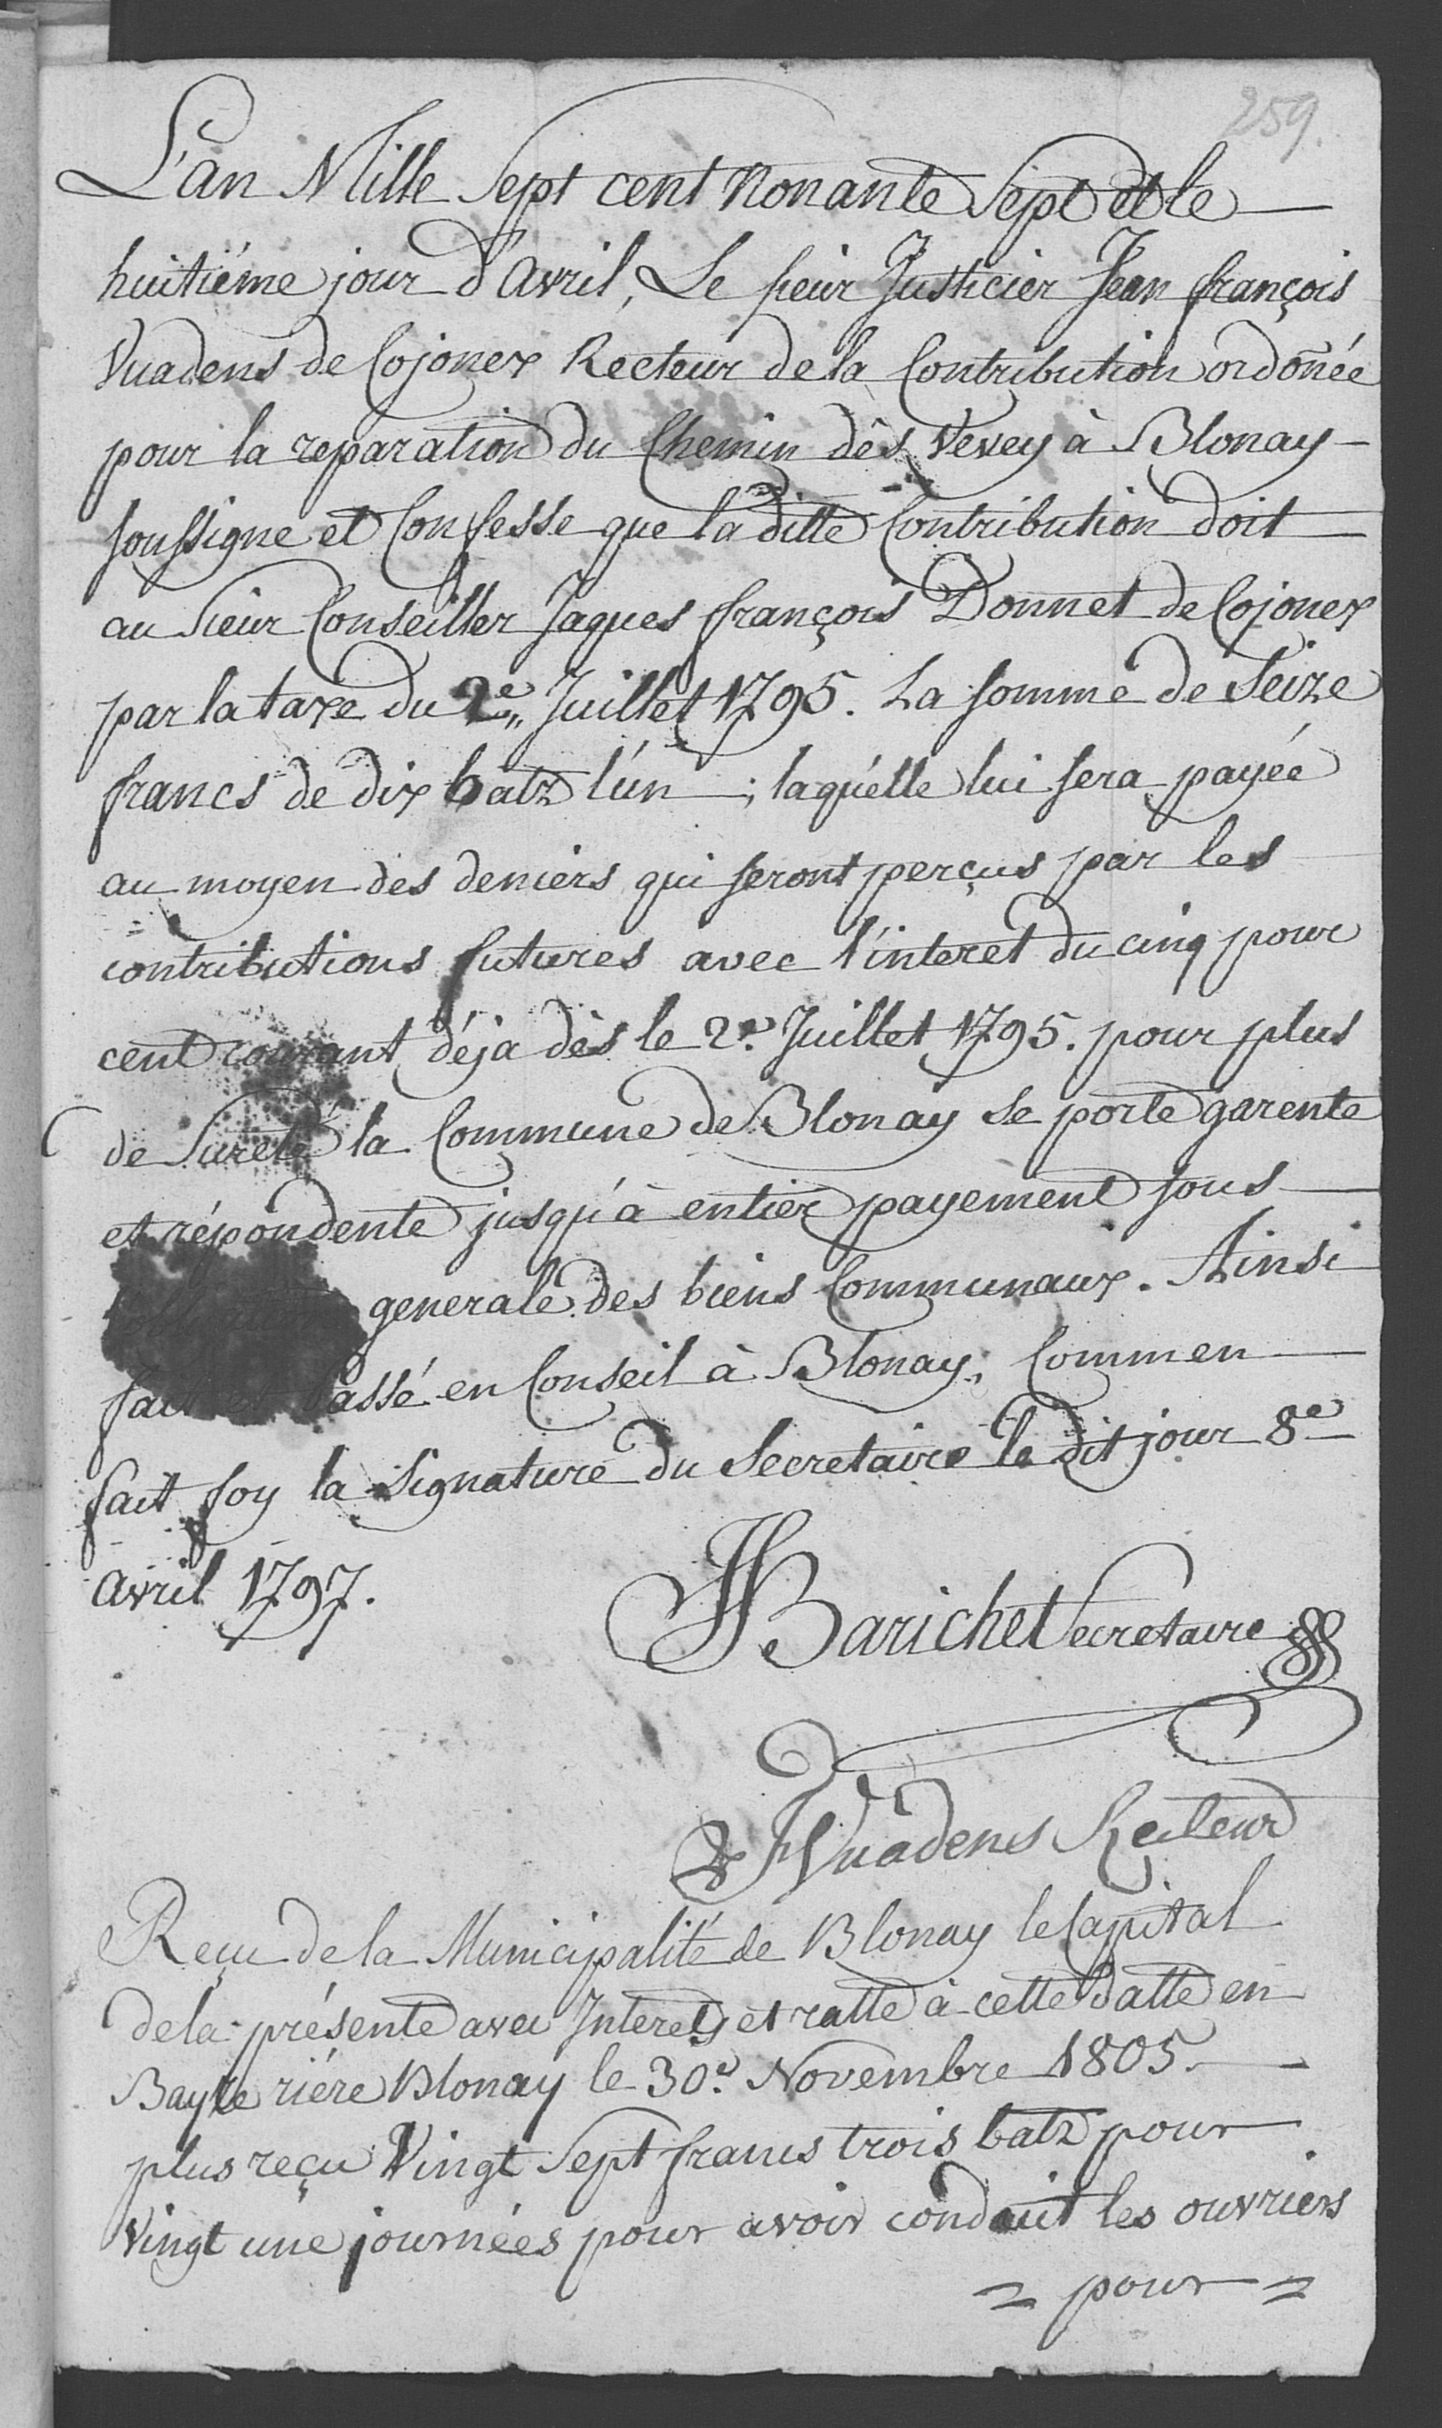 259.
L'an Mille Sept cent Nonante Sept et le
huitiéme jour d'Avril, Le sieur Justicier Jean françois
Vuadens de Cojonex Recteur de la Contribution ordoñée
pour la reparation du Chemin dès Vevey à Blonay
soussigne et Confesse que la ditte Contribution doit
au Sieur Conseiller Jaques françois Donnet de Cojonex
par la taxe du 2e,, Juillet 1795. La somme de Seize
francs de dix batz l'un ; laquélle lui sera payée
au moyen des deniers qui seront perçus par les
contributions futures avec l'interet du cinq pour
cent courant déja dès le 2e. Juillet 1795. pour plus
de Sureté la Commune de Blonay se porte garente
et répondente jusqu'à entier payement sous
generale des biens Communaux. Ainsi
fait et Passé en Conseil à Blonay, Comm en
fait foy la Signature du Secretaire le dit jour 8e
avril 1797.
Barichet Secretaire
Vuadens Recteur
Reçu de la Municipalité de Blonay le Capital
de la présente avec Interets et ratte à cette datte en
riére Blonay le 30e. Novembre 1805.
plus reçu Vingt Sept francs trois batz pour
Vingt une journées pour avoir conduit les ouvriers
= pour =